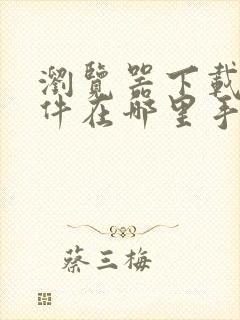 瀏覽器下載
件在哪里手
蔡三梅